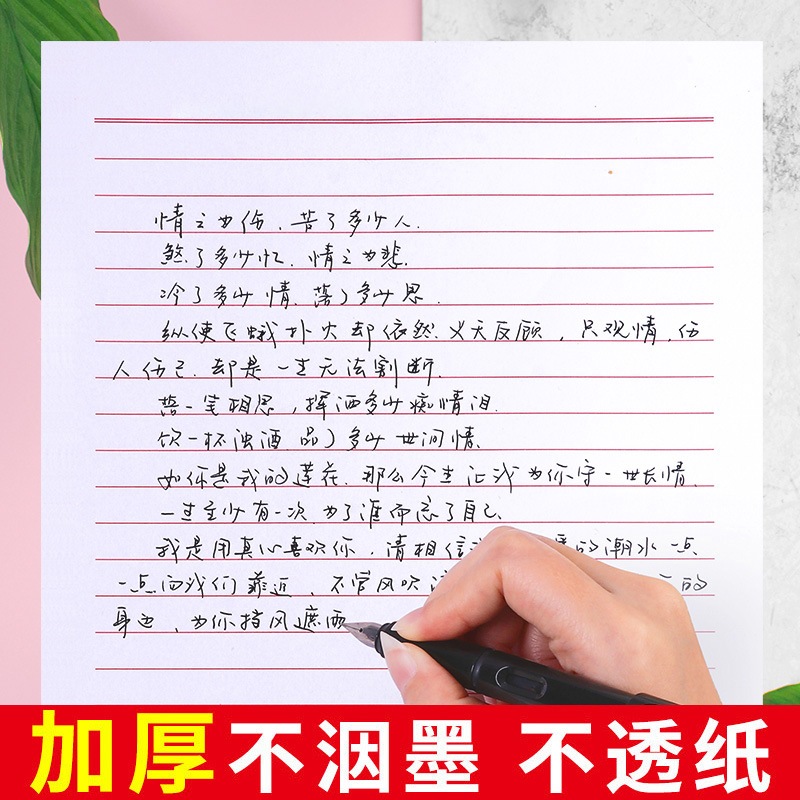 情之为伤、苦了多少人.
煞了多少忆.情之为悲.
冷了多少情、落了多少思.
纵使飞蛾扑火却依然义无反顾,只观情,伤
人伤己.却是一生无法割断.
蘸一笔相思,挥洒多少痴情泪.
饮一杯浊酒.品了多少世间情.
如你是我的莲花.那么今生让我为你守一世长情.
一生至少有一次.为了谁而忘了自己.
我是用真心喜欢你,请相信 的潮水一点、
一点向我们靠近,不管风吹 的
身边,为你挡风遮雨
加厚不洇墨 不透纸